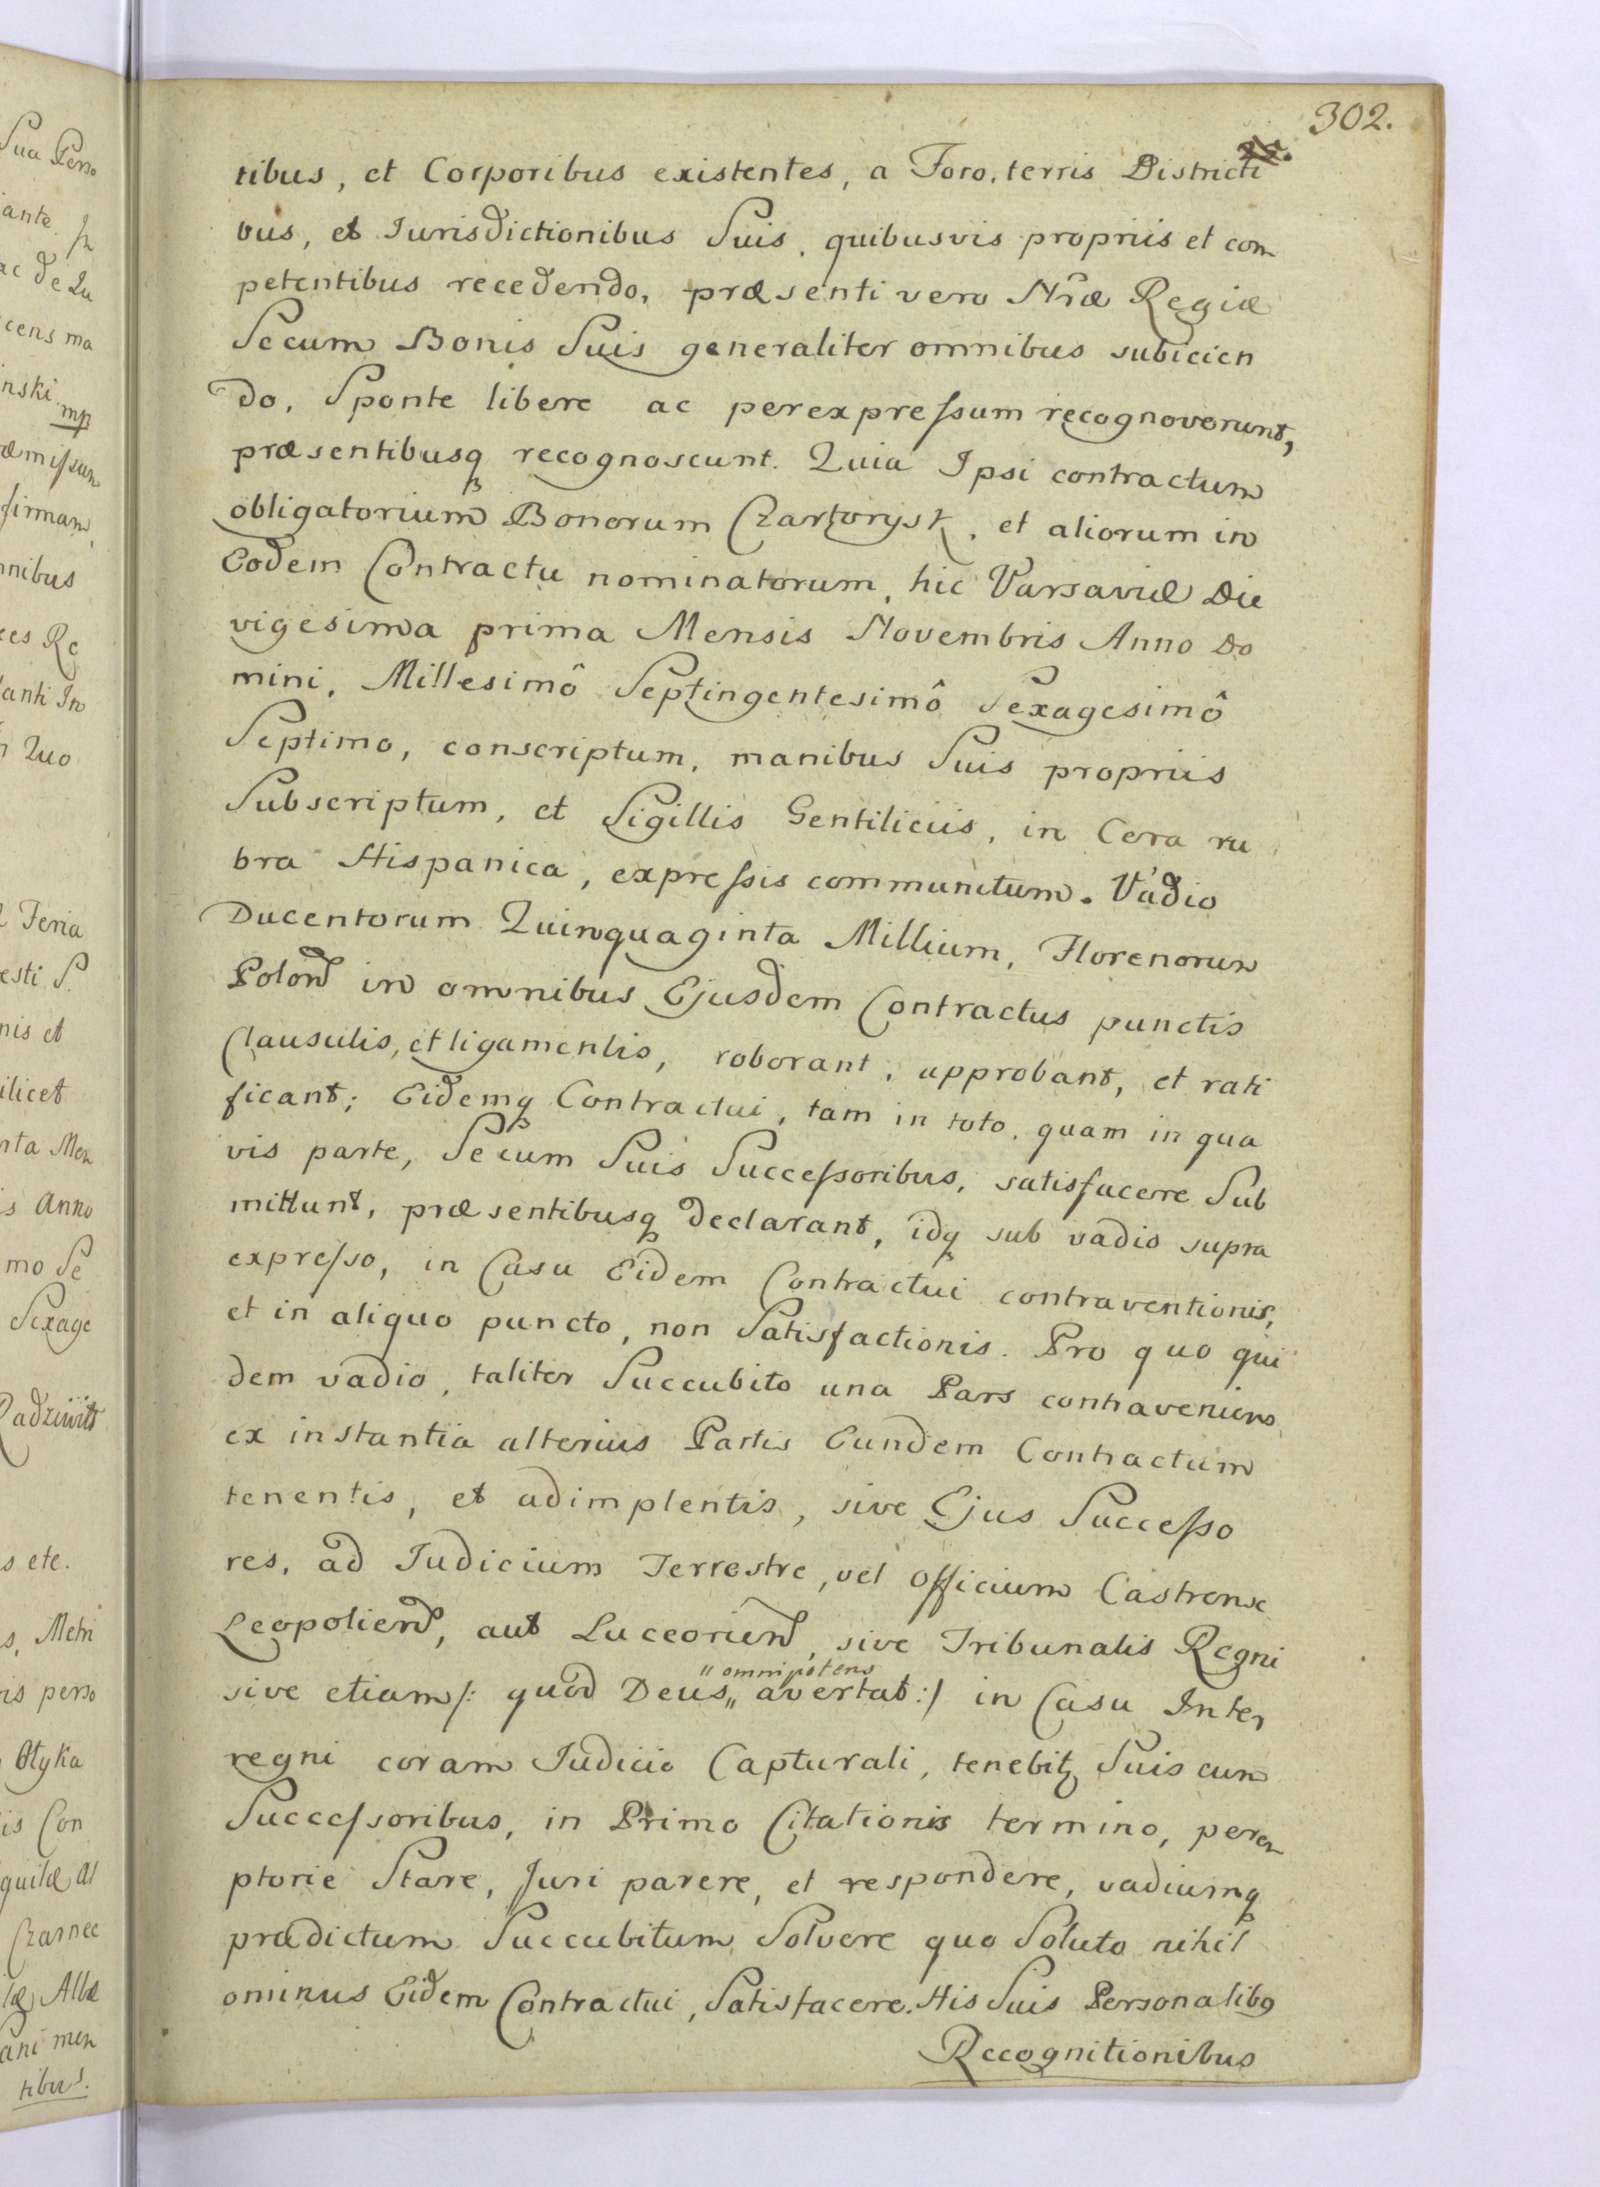 302.
tibus, et Corporibus existentes, a Foro, terris Districti
bus, et Jurisdictionibus Suis, quibusvis propriis et com
petentibus recedendo, præsenti vero Nræ Regiæ
Secum Bonis Suis generaliter omnibus subicien
do, Sponte libere ac per expressum recognoverunt,
præsentibusq recognoscunt. Quia Ipsi contractum
obligatorium Bonorum Czartorysk, et aliorum in
Eodem Contractu nominatorum, hic Varsaviæ Die
vigesima prima Mensis Novembris Anno Do
mini, Millesimô Septingentesimô Sexagesimô
Septimo, conscriptum, manibus Suis propriis
Subscriptum, et Sigillis Gentiliciis, in Cera ru
bra Hispanica, expressis communitum. Vadio
Ducentorum Quinquaginta Millium, Florenorum
Polon in omnibus Ejusdem Contractus punctis
Clausulis, et ligamentis, roborant, approbant, et rati
ficant; Eidemq Contractui, tam in toto, quam in qua
vis parte, Secum Suis Successoribus, satisfacere Sub
mittunt, præsentibusq declarant, idq sub vadio supra
expresso, in Casu Eidem Contractui contraventionis,
et in aliquo puncto, non Satisfactionis. Pro quo qui
dem vadio, taliter Succubito una Pars contraveniens
ex instantia alterius Partis Eundem Contractum
tenentis, et adimplentis, sive Ejus Successo
res, ad Judicium Terrestre, vel Officium Castrense
Leopolien, aut Luceorien, sive Tribunalis Regni
"omnipotens
sive etiam /: quod Deus,, avertat :/ in Casu Inter
regni coram Judicio Capturali, tenebitz Suis cum
Successoribus, in Primo Citationis termino, perem
ptorie Stare, Juri parere, et respondere, vadiumq
prædictum Succubitum Solvere quo Soluto nihil
ominus Eidem Contractui, Satisfacere. His Suis Personalibq
Recognitionibus